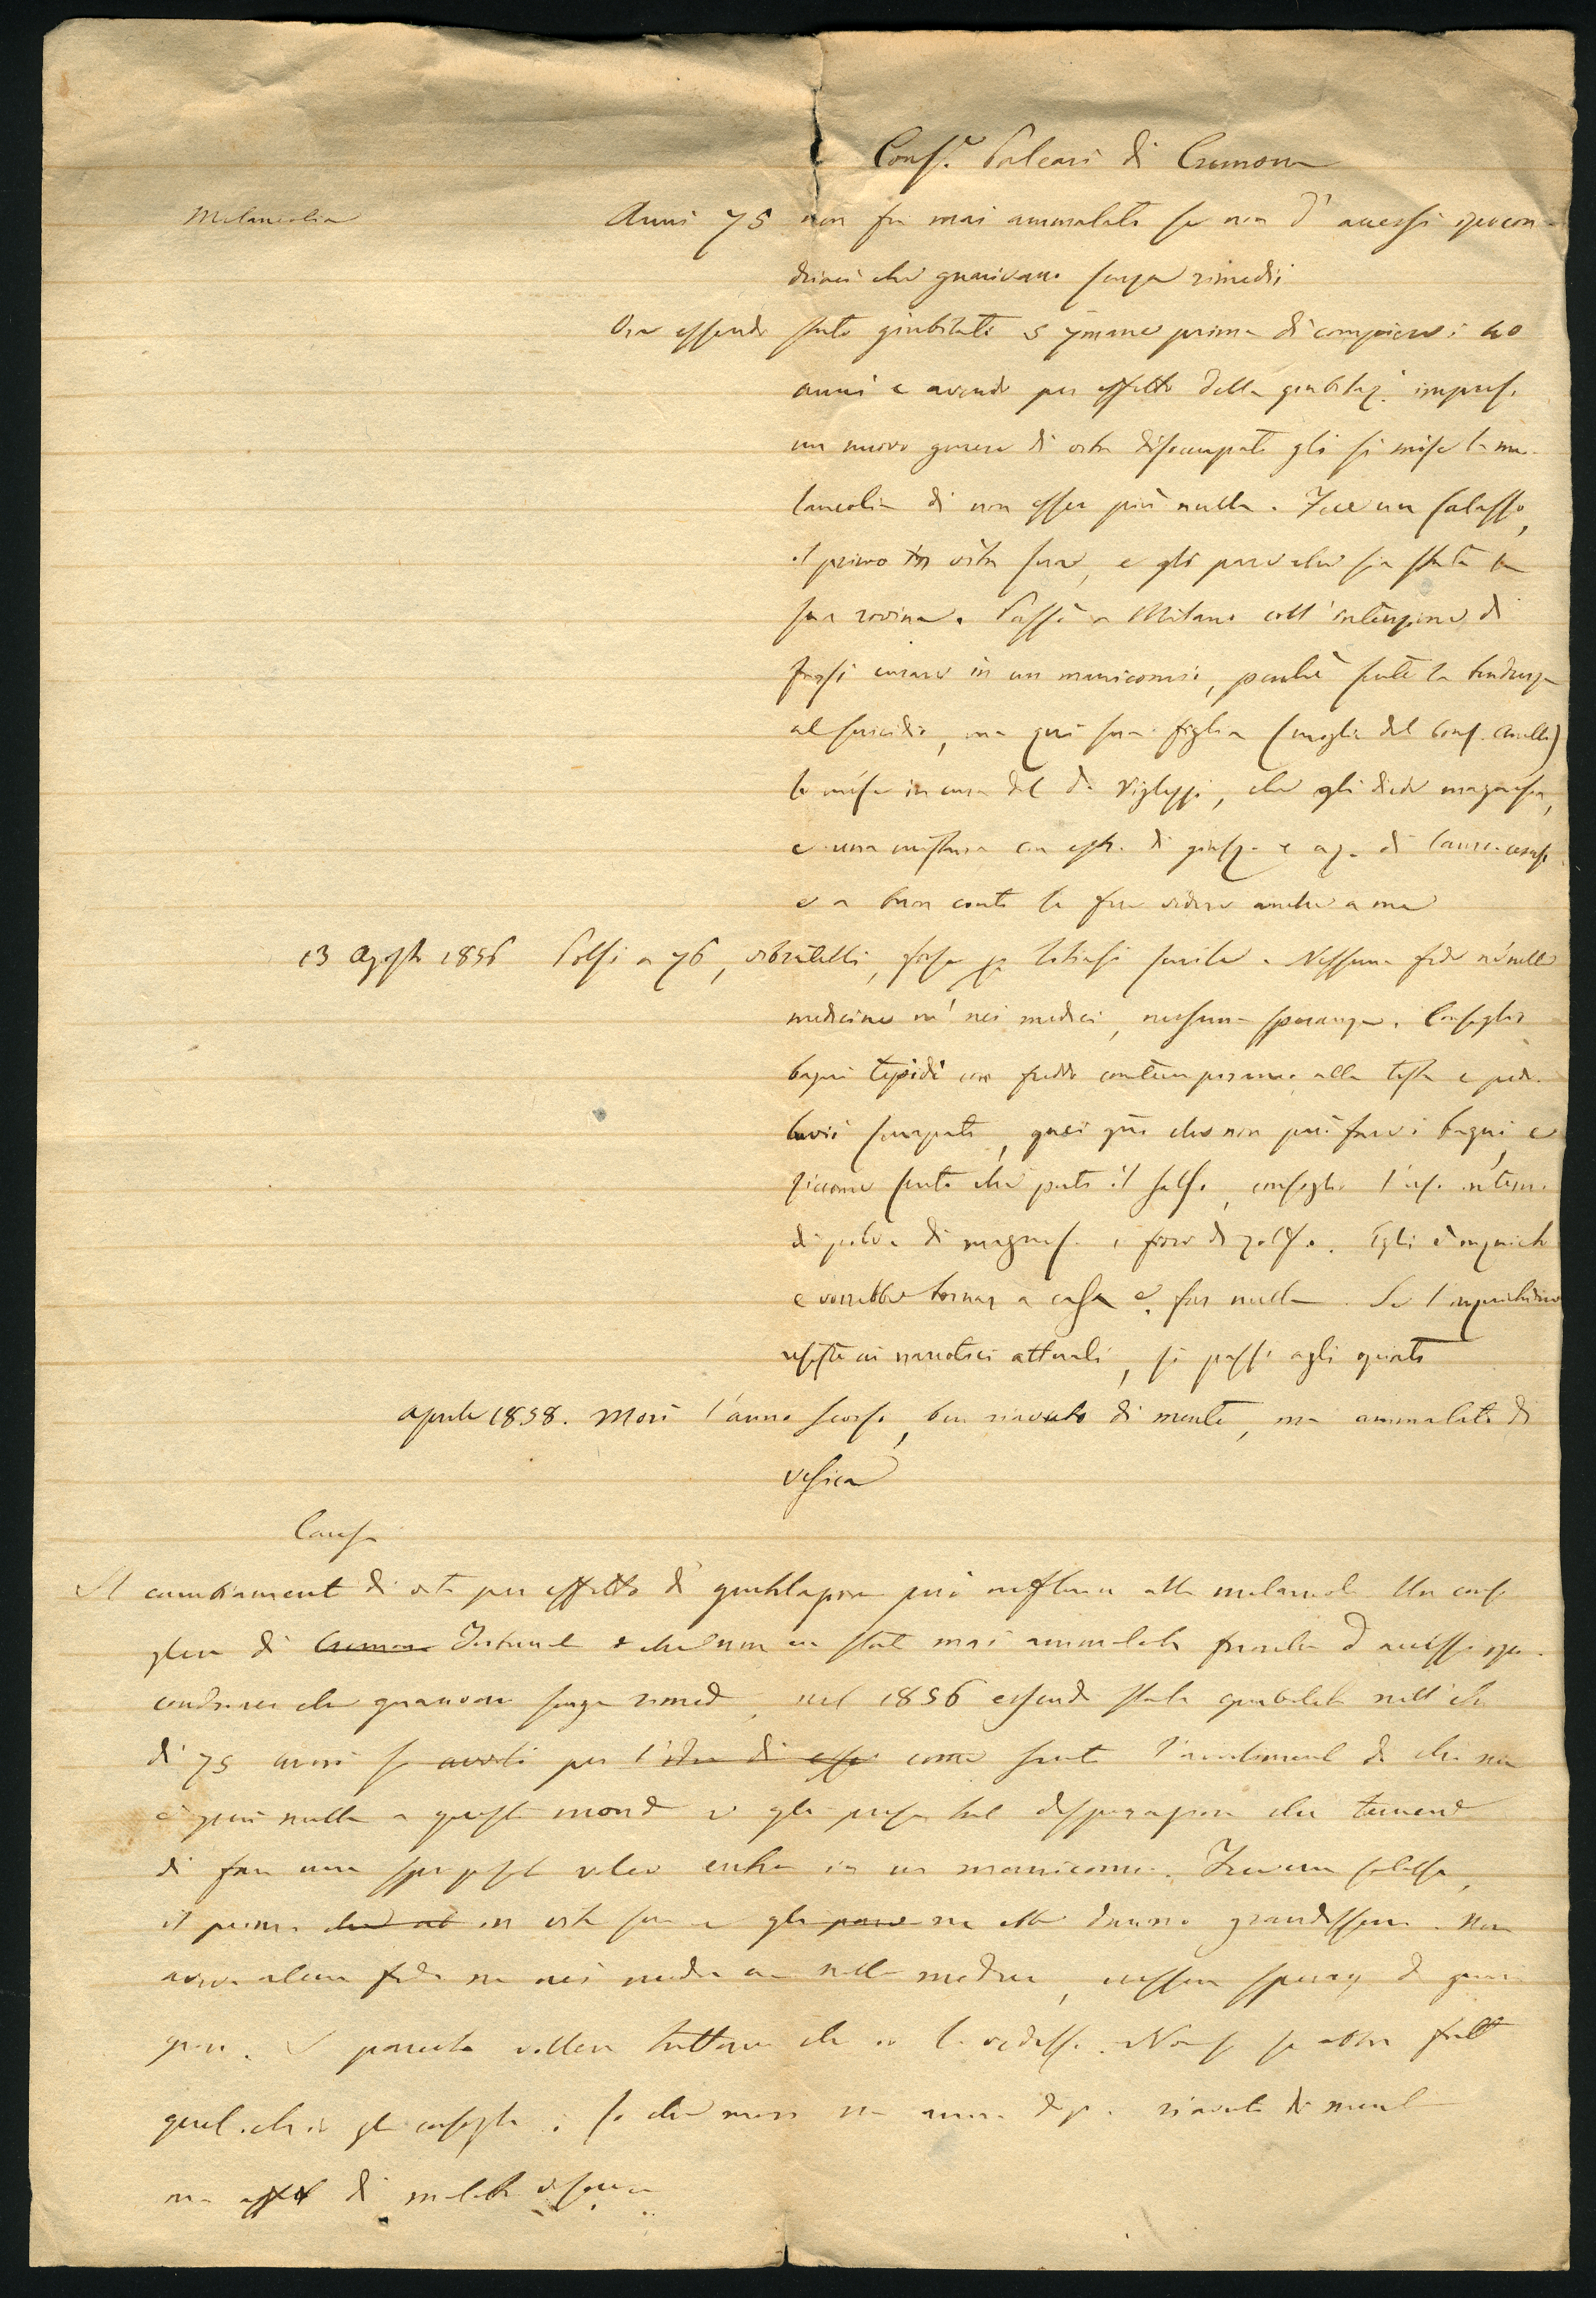 Cons.e Paleari di Cremona
Melancolia
Anni 75 non fu mai ammalato se non d'accessi ipocon-
driaci che guarivano senza rimedii
Ora essendo stato giubilato 5 7mane prima di compiere i 40
anni e avendo per effetto della giubilaz. impreso
un nuovo genere di vita disoccupato gli si mise la me-
lancolia di non esser più nulla. Fece un salasso,
il primo in vita sua, e gli pare che sia stata la
sua rovina. Passò a Milano coll'intenzione di
farsi curare in un manicomio, perchè sente la tendenza
al suicidio, ma qui sua figlia (moglie del Cons.
lo mise in cura del D. Viglezzi, che gli diede magnesia,
e una mistura con estr. di giusq. e aq. di lauroceraso
e a buon conto lo fece vedere anche a me
13 Agosto 1856 Polsi a 76, vibratelli, forse per tabe senile. Nessuna fede nè nelle
medicine nè nei medici, nessuna speranza. Consiglio
bagni tepidi con freddo contemporaneo alla testa e pedi-
luvii senapati, che non può fare i bagni, e
siccome sento che patì il salso, consiglio l'uso interno
di polv. di magnes. e fiore di zolfo. Egli è inquieto
e vorrebbe tornar a casa e far nulla. Se l'inquietudine
resiste ai narcotici attuali, si passi agli oppiati
Aprile 1858. Morì l'anno scorso, ben riavuto di mente, ma ammalato di
vescica
Causa
Il cambiament di vita per effetto di giubilazione può influire alla melancol. Un consi
gliere di Cremona Tribunale che non era stat mai ammalato fuorchè d'accessi ipo-
condriaci che guarivano senza rimed, nel 1856 essend stato giubilato nell'età
di 75 anni se avvilì per l'idea di esser come sente l'avvilimento di che non
è più nulla a questo mond e gli prese tal disperazione che temend
di fare uno sproposit voleva entrar in un manicomio. Fece un salasso,
il primo che al in vita sua e gli parve ne ebbe danno grandissimo. Non
aveva alcuna fede nè nei medici nè nelle medicine, nessuna speranz di guari
gione. I parenti vollero tuttavia che io lo vedessi. Non so se abbia fatt
quel che io gli consigliai; so che morì un anno dopo riavuto di mente
ma di malatt vescica